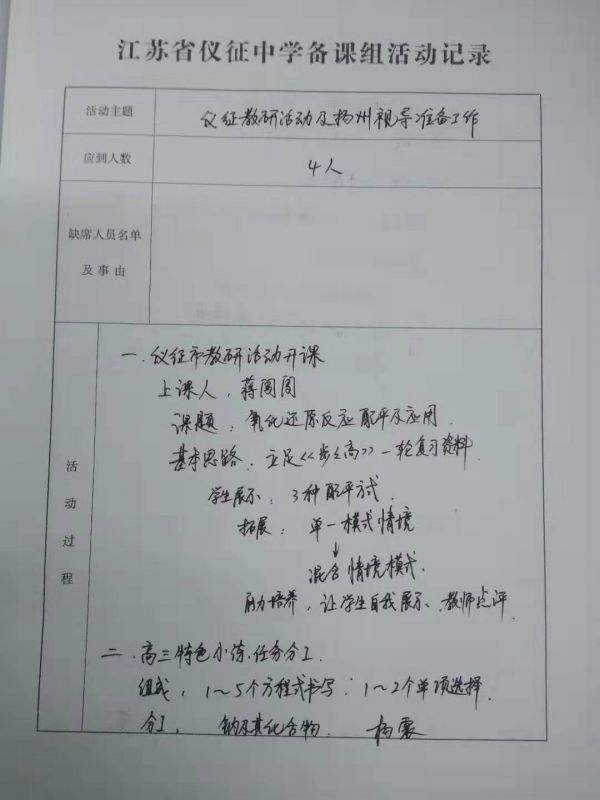 江苏省仪征中学备课组活动记录
活动主题 仪征教研活动及扬州视导准备工作
应到人数 4人
缺席人员名单
及事由
活动过程
一.仪征市教研活动开课
上课人,蒋囡囡
课题:氧化还原反应配平及应用.
基本思路.立足《步步高》一轮复习资料
学生展示:3种配平方式.
拓展:单一模式情境
↓
混合情境模式.
能力培养,让学生自我展示、教师点评.
二.高三特色小练任务分工.
组成:1~5个方程式书写;1~2个单项选择.
分工, 钠及其化合物. 杨震